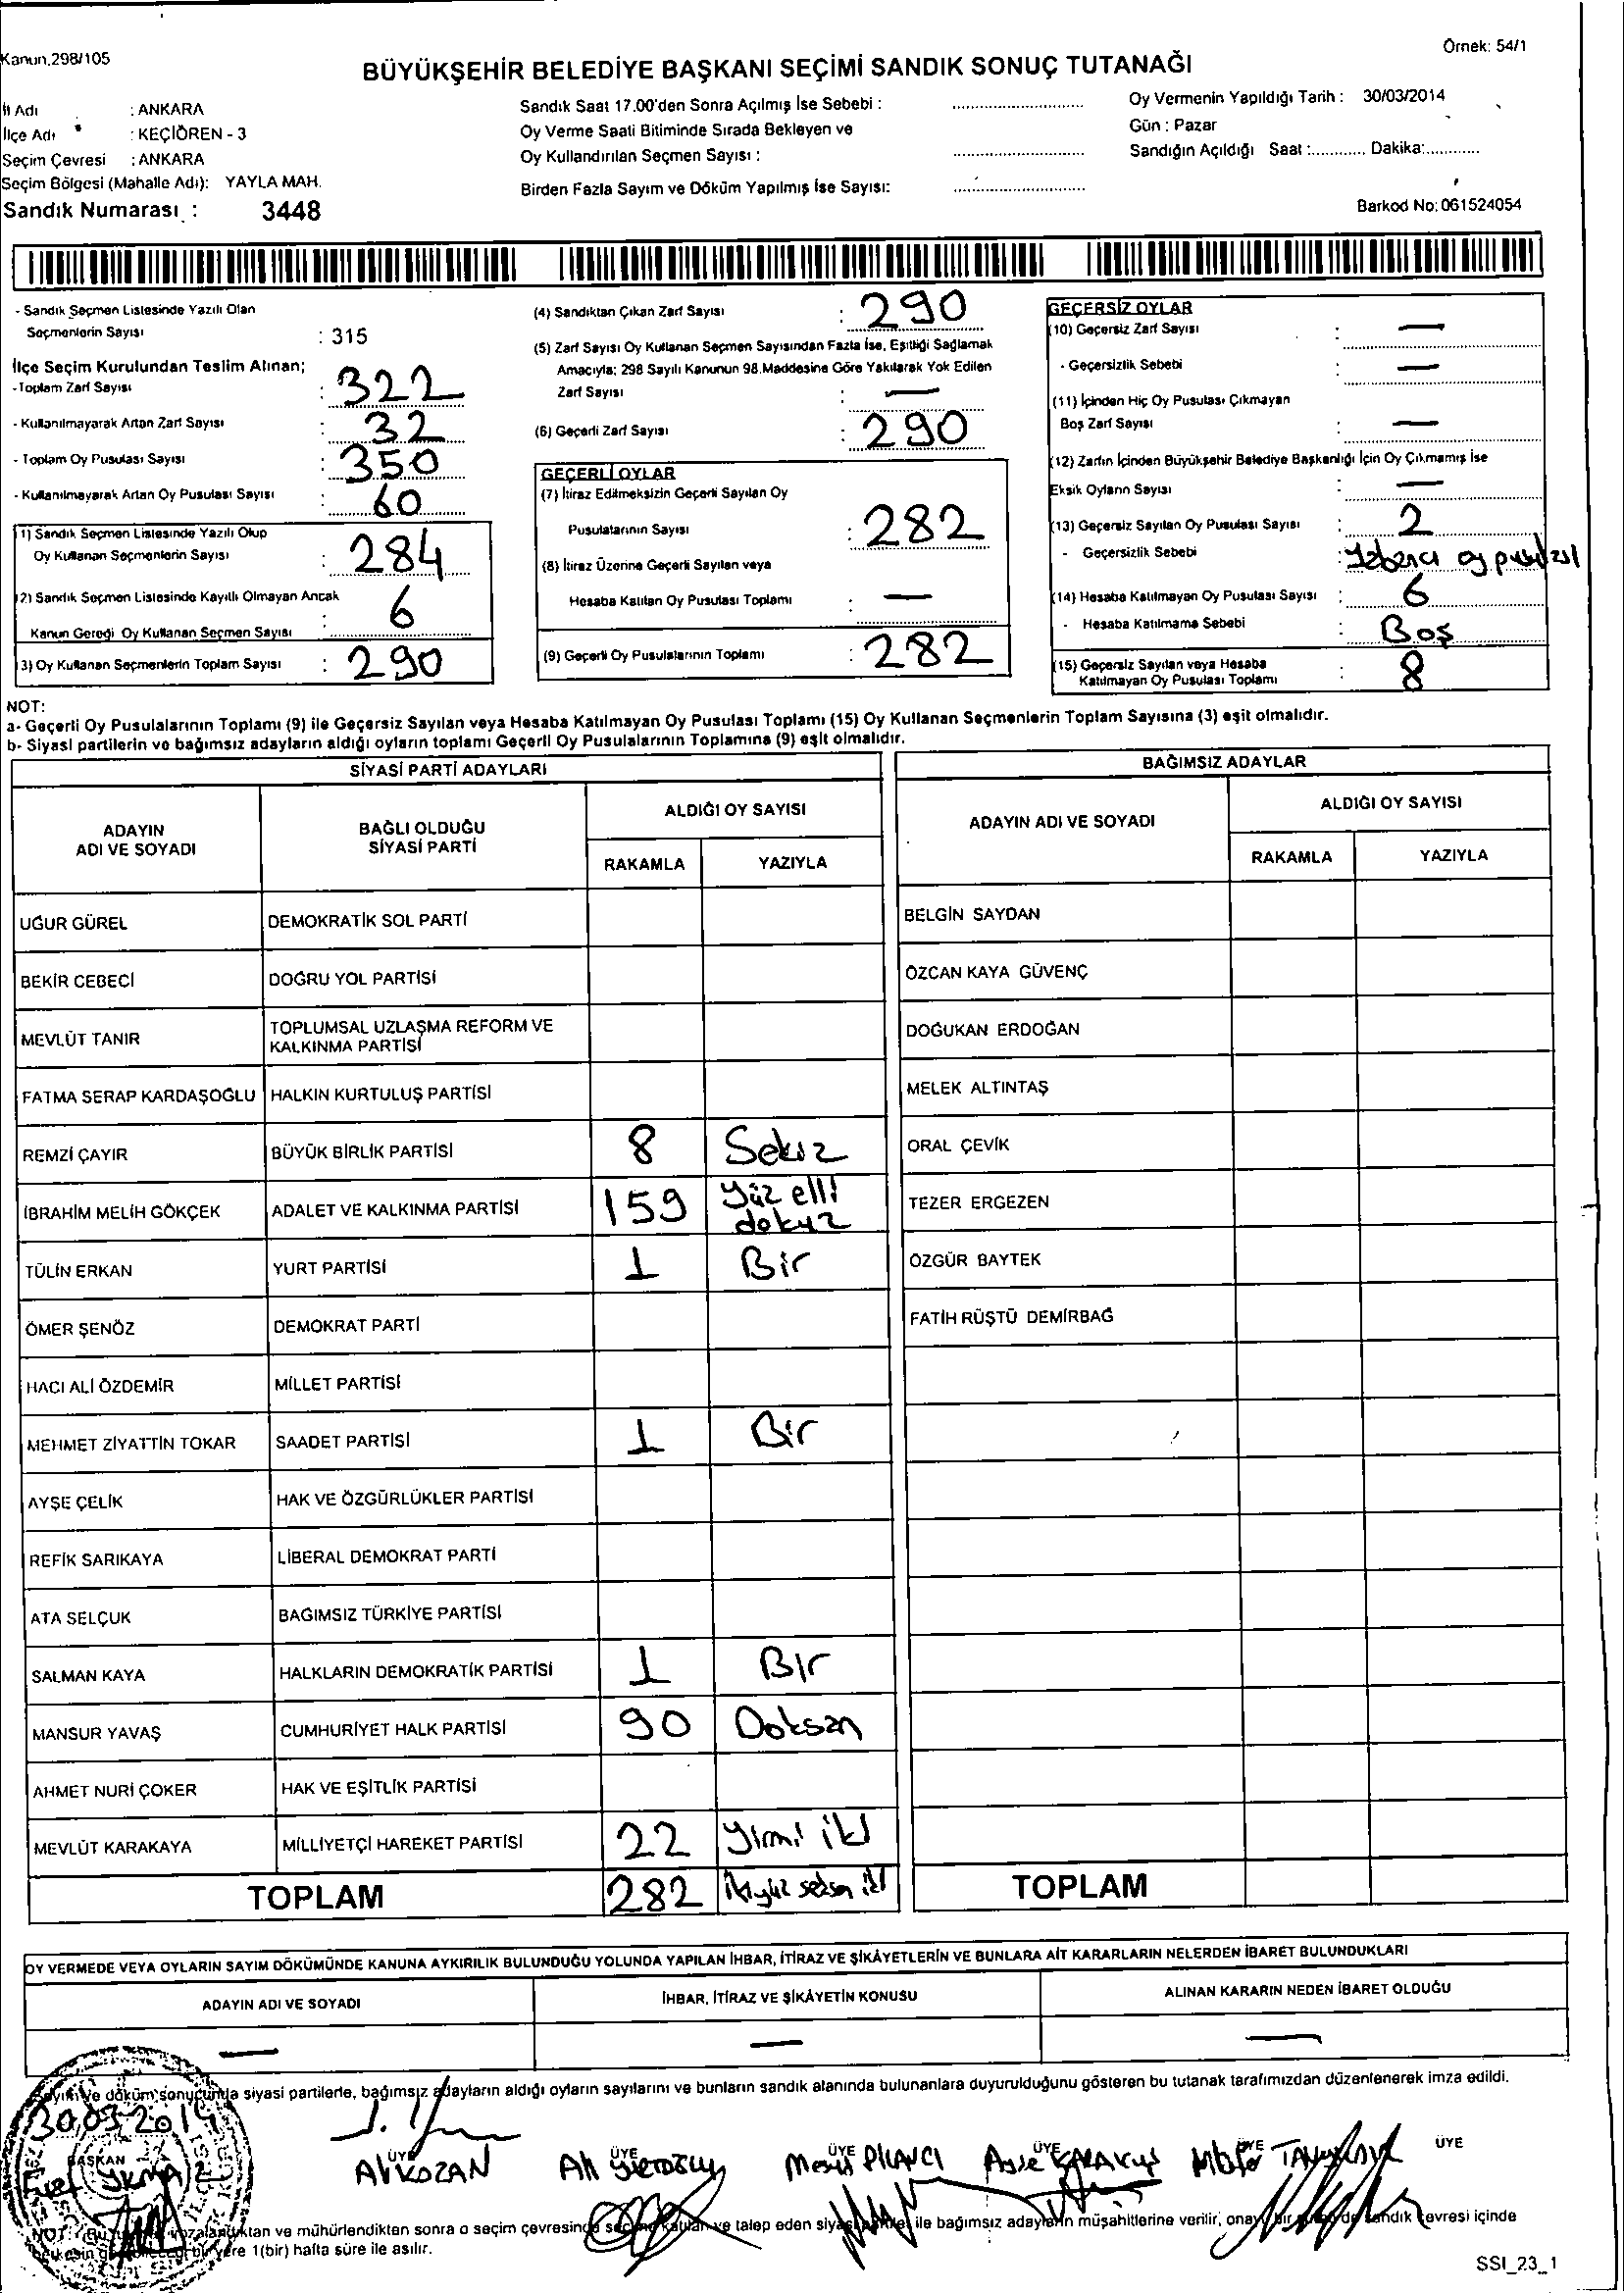 Kanun.298/105
Örnek: 54/1
BÜYÜKŞEHİR BELEDİYE BAŞKANI SEÇİMİ SANDIK SONUÇ TUTANAĞI
İl Adı : ANKARA
İlçe Adı : KEÇİÖREN - 3
Seçim Çevresi : ANKARA
Seçim Bölgesi (Mahalle Adı): YAYLA MAH.
Sandık Numarası : 3448
Sandık Saat 17.00'den Sonra Açılmış İse Sebebi :
Oy Verme Saati Bitiminde Sırada Bekleyen ve
Oy Kullandırılan Seçmen Sayısı :
Birden Fazla Sayım ve Döküm Yapılmış İse Sayısı:
Oy Vermenin Yapıldığı Tarih : 30/03/2014
Gün : Pazar
Sandığın Açıldığı Saat :............ Dakika:............
Barkod No: 061524054
- Sandık Seçmen Listesinde Yazılı Olan
Seçmenlerin Sayısı : 315
İlçe Seçim Kurulundan Teslim Alınan;
- Toplam Zarf Sayısı : 322
- Kullanılmayarak Artan Zarf Sayısı : 32
- Toplam Oy Pusulası Sayısı : 350
- Kullanılmayarak Artan Oy Pusulası Sayısı : 60
1) Sandık Seçmen Listesinde Yazılı Olup
Oy Kullanan Seçmenlerin Sayısı : 284
2) Sandık Seçmen Listesinde Kayıtlı Olmayan Ancak
Kanun Gereği Oy Kullanan Seçmen Sayısı : 6
3) Oy Kullanan Seçmenlerin Toplam Sayısı : 290
(4) Sandıktan Çıkan Zarf Sayısı : 290
(5) Zarf Sayısı Oy Kullanan Seçmen Sayısından Fazla İse, Eşitliği Sağlamak
Amacıyla; 298 Sayılı Kanunun 98.Maddesine Göre Yakılarak Yok Edilen
Zarf Sayısı : —
(6) Geçerli Zarf Sayısı : 290
GEÇERLİ OYLAR
(7) İtiraz Edilmeksizin Geçerli Sayılan Oy
Pusulalarının Sayısı : 282
(8) İtiraz Üzerine Geçerli Sayılan veya
Hesaba Katılan Oy Pusulası Toplamı : —
(9) Geçerli Oy Pusulalarının Toplamı : 282
GEÇERSİZ OYLAR
(10) Geçersiz Zarf Sayısı : —
- Geçersizlik Sebebi : —
(11) İçinden Hiç Oy Pusulası Çıkmayan
Boş Zarf Sayısı : —
(12) Zarfın İçinden Büyükşehir Belediye Başkanlığı İçin Oy Çıkmamış İse
Eksik Oyların Sayısı : —
(13) Geçersiz Sayılan Oy Pusulası Sayısı : 2
- Geçersizlik Sebebi : Yabancı oy
(14) Hesaba Katılmayan Oy Pusulası Sayısı : 6
- Hesaba Katılmama Sebebi : Boş
(15) Geçersiz Sayılan veya Hesaba
Katılmayan Oy Pusulası Toplamı : 8
NOT:
a- Geçerli Oy Pusulalarının Toplamı (9) ile Geçersiz Sayılan veya Hesaba Katılmayan Oy Pusulası Toplamı (15) Oy Kullanan Seçmenlerin Toplam Sayısına (3) eşit olmalıdır.
b- Siyasi partilerin ve bağımsız adayların aldığı oyların toplamı Geçerli Oy Pusulalarının Toplamına (9) eşit olmalıdır.
SİYASİ PARTİ ADAYLARI
ADAYIN ADI VE SOYADI BAĞLI OLDUĞU SİYASİ PARTİ ALDIĞI OY SAYISI
RAKAMLA YAZIYLA
UĞUR GÜREL DEMOKRATİK SOL PARTİ
BEKİR CEBECİ DOĞRU YOL PARTİSİ
MEVLÜT TANIR TOPLUMSAL UZLAŞMA REFORM VE KALKINMA PARTİSİ
FATMA SERAP KARDAŞOĞLU HALKIN KURTULUŞ PARTİSİ
REMZİ ÇAYIR BÜYÜK BİRLİK PARTİSİ 8 Sekiz
İBRAHİM MELİH GÖKÇEK ADALET VE KALKINMA PARTİSİ 159 Yüz elli dokuz
TÜLİN ERKAN YURT PARTİSİ 1 Bir
ÖMER ŞENÖZ DEMOKRAT PARTİ
HACI ALİ ÖZDEMİR MİLLET PARTİSİ
MEHMET ZİYATTİN TOKAR SAADET PARTİSİ 1 Bir
AYŞE ÇELİK HAK VE ÖZGÜRLÜKLER PARTİSİ
REFİK SARIKAYA LİBERAL DEMOKRAT PARTİ
ATA SELÇUK BAĞIMSIZ TÜRKİYE PARTİSİ
SALMAN KAYA HALKLARIN DEMOKRATİK PARTİSİ 1 Bir
MANSUR YAVAŞ CUMHURİYET HALK PARTİSİ 90 Doksan
AHMET NURİ ÇOKER HAK VE EŞİTLİK PARTİSİ
MEVLÜT KARAKAYA MİLLİYETÇİ HAREKET PARTİSİ 22 Yirmi iki
TOPLAM 282 İkiyüz seksen iki
BAĞIMSIZ ADAYLAR
ADAYIN ADI VE SOYADI ALDIĞI OY SAYISI
RAKAMLA YAZIYLA
BELGİN SAYDAN
ÖZCAN KAYA GÜVENÇ
DOĞUKAN ERDOĞAN
MELEK ALTINTAŞ
ORAL ÇEVİK
TEZER ERGEZEN
ÖZGÜR BAYTEK
FATİH RÜŞTÜ DEMİRBAĞ
TOPLAM
OY VERMEDE VEYA OYLARIN SAYIM DÖKÜMÜNDE KANUNA AYKIRILIK BULUNDUĞU YOLUNDA YAPILAN İHBAR, İTİRAZ VE ŞİKÂYETLERİN VE BUNLARA AİT KARARLARIN NELERDEN İBARET BULUNDUKLARI
ADAYIN ADI VE SOYADI İHBAR, İTİRAZ VE ŞİKÂYETİN KONUSU ALINAN KARARIN NEDEN İBARET OLDUĞU
— — —
Sayım ve döküm sonucunda siyasi partilerle, bağımsız adayların aldığı oyların sayılarını ve bunların sandık alanında bulunanlara duyurulduğunu gösteren bu tutanak tarafımızdan düzenlenerek imza edildi.
30.03.2014
BAŞKAN ÜYE ÜYE ÜYE ÜYE ÜYE ÜYE
Ali KOZAN Ali Ayşe KARAKUŞ
NOT: Bu ktan ve mühürlendikten sonra o seçim çevresinde seçime katılan ve talep eden siyasi partiler ile bağımsız adayların müşahitlerine verilir, onaylı bir sandık çevresi içinde
bir yere 1(bir) hafta süre ile asılır.
SSI_23_1